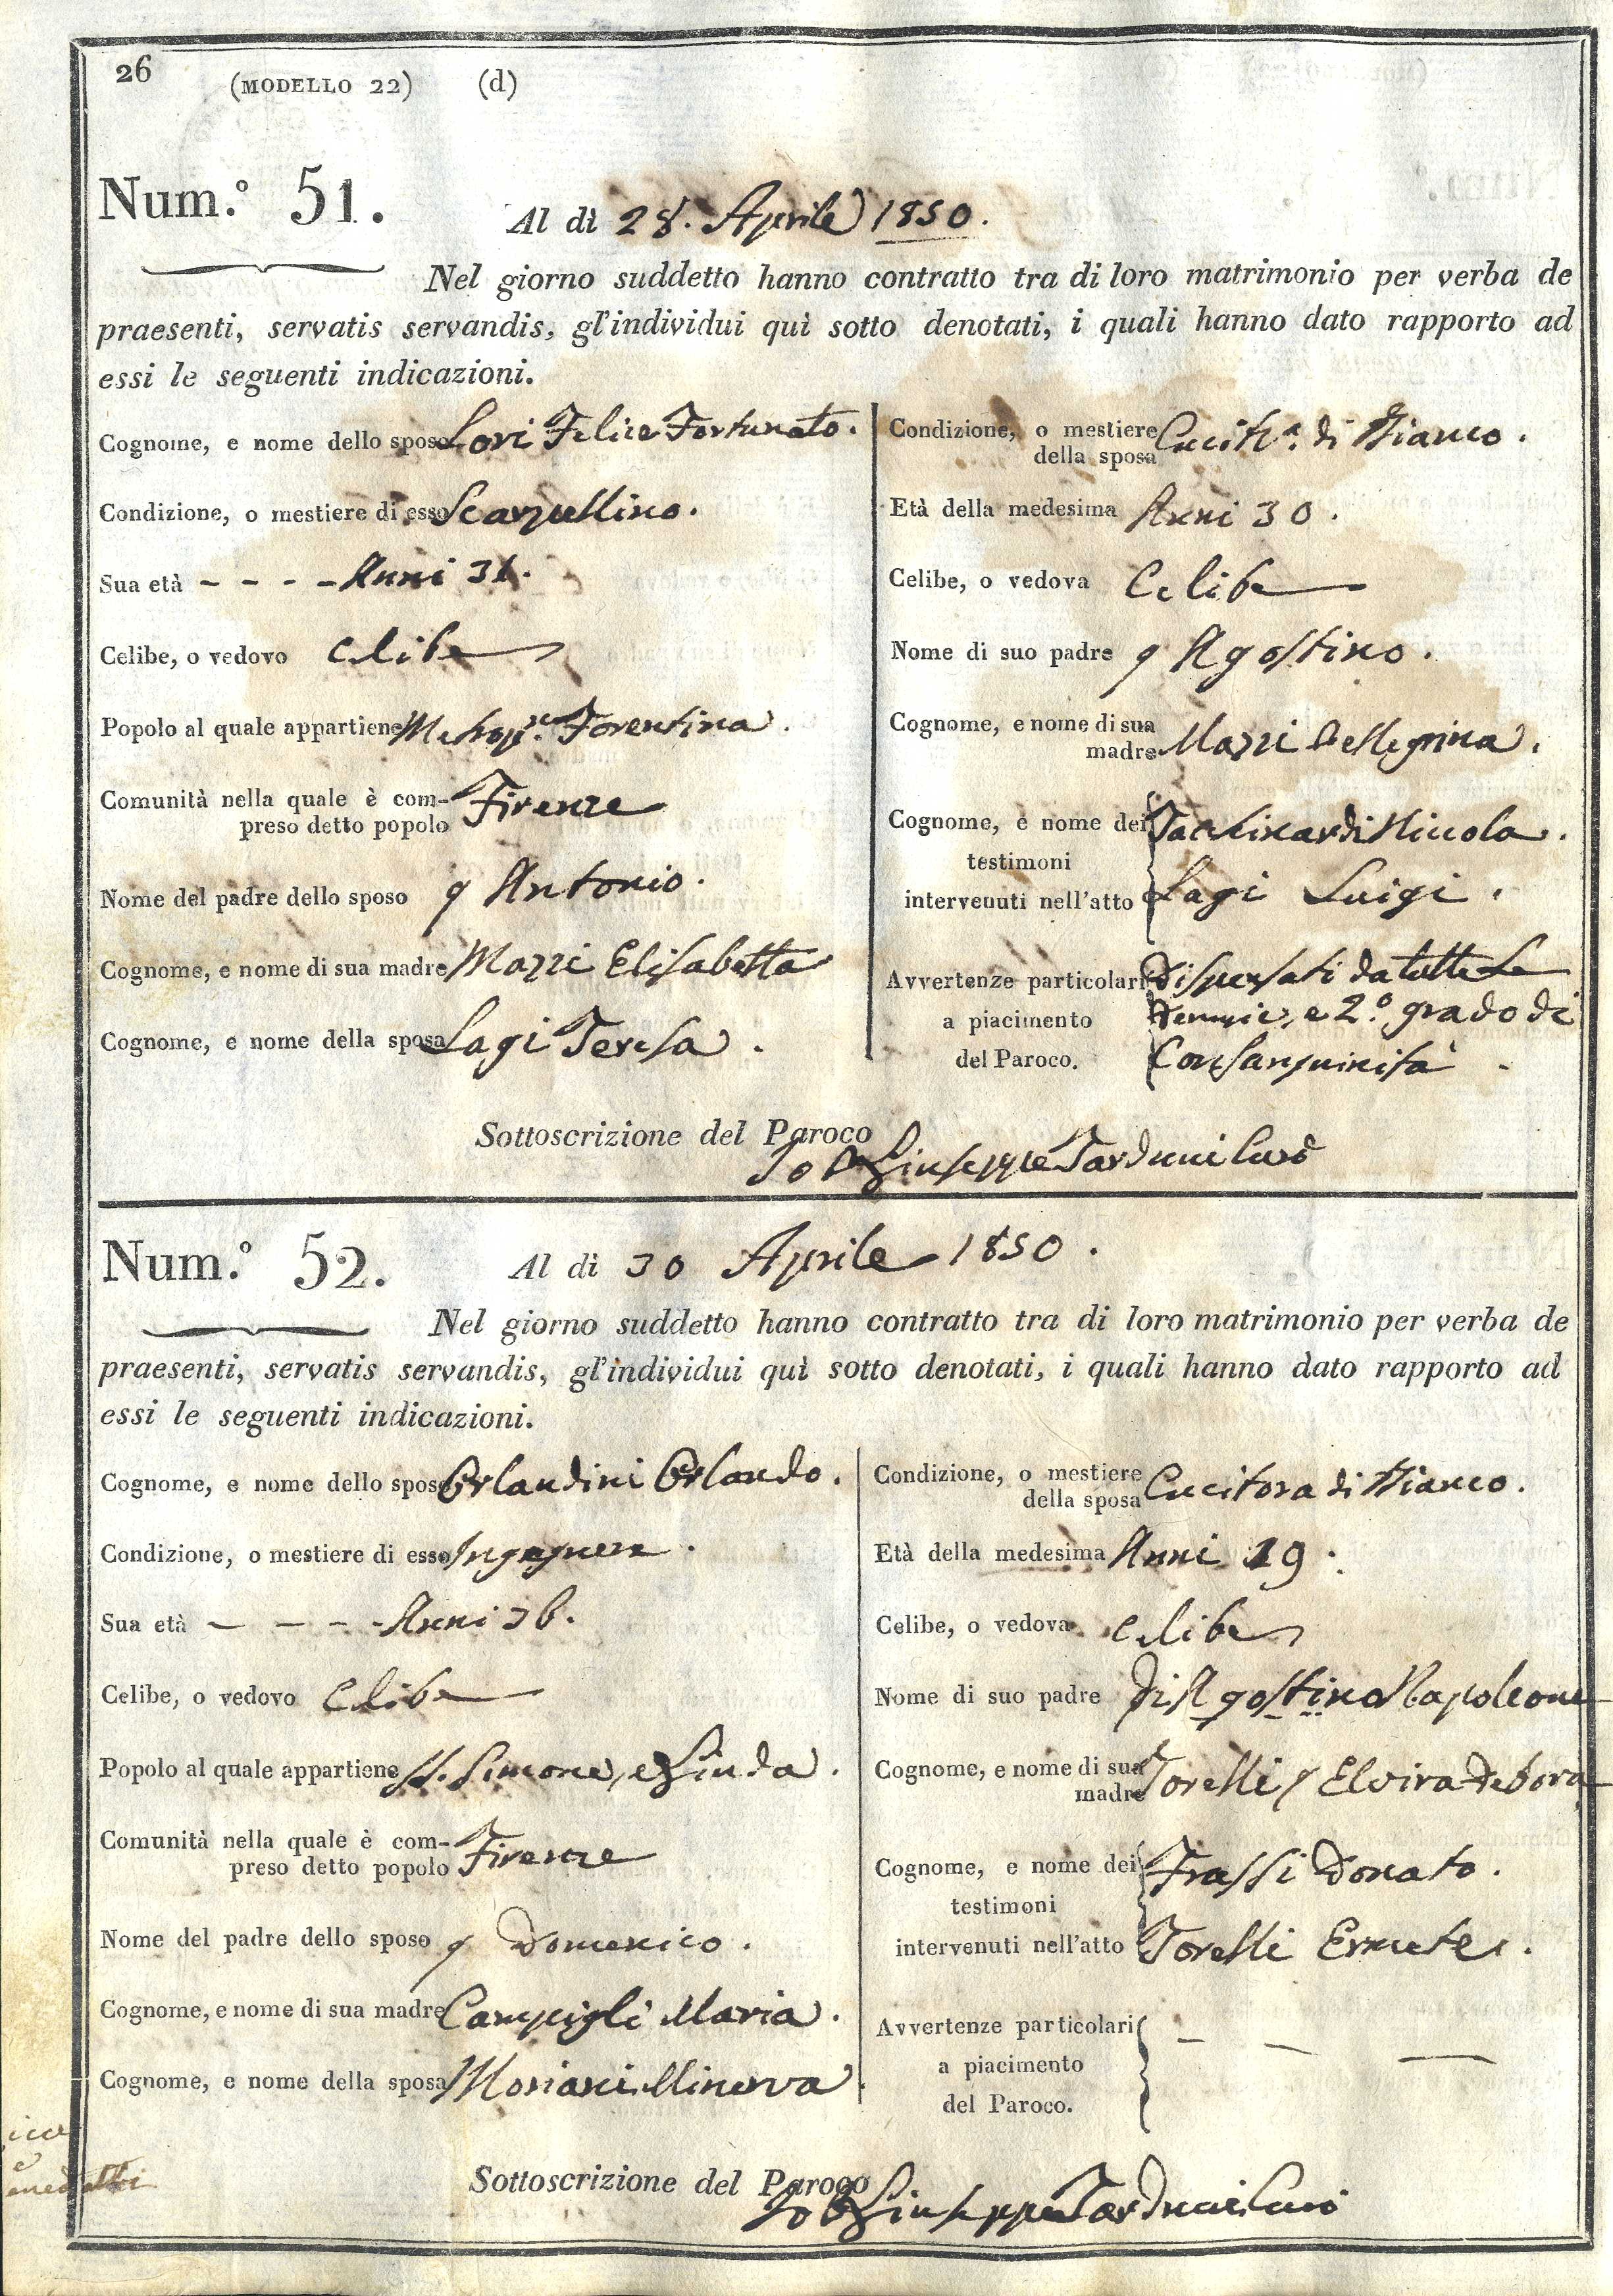 26
(MODELLO 22) (d)
Num.° 51.
Al dì 28. Aprile 1850.
Nel giorno suddetto hanno contratto tra di loro matrimonio per verba de
praesenti, servatis servandis, gl'individui quì sotto denotati, i quali hanno dato rapporto ad
essi le seguenti indicazioni.
Cognome, e nome dello sposo Lori Felice Fortunato.
Condizione, o mestiere di esso Scarpellino.
Sua età - - - - Anni 31.
Celibe, o vedovo Celibe
Popolo al quale appartiene Metrop.na Fiorentina.
Comunità nella quale è com-
preso detto popolo Firenze
Nome del padre dello sposo q Antonio.
Cognome, e nome di sua madre Mazzi Elisabetta
Cognome, e nome della sposa Lagi Teresa.
Condizione, o mestiere
della sposa Cucit.a di Bianco.
Età della medesima Anni 30.
Celibe, o vedova Celibe
Nome di suo padre q Agostino.
Cognome, e nome di sua
madre Mazzi Pellegrina.
Cognome, e nome dei Tacchinardi Niccola.
testimoni
intervenuti nell'atto Lagi Luigi.
Avvertenze particolari Dispensati da tutte Le
a piacimento Denunzie, e 2.° grado di
del Paroco. Consanguinità.
Sottoscrizione del Paroco
Io Giuseppe Tarduni Curo
Num.° 52.
Al dì 30 Aprile 1850.
Nel giorno suddetto hanno contratto tra di loro matrimonio per verba de
praesenti, servatis servandis, gl'individui quì sotto denotati, i quali hanno dato rapporto ad
essi le seguenti indicazioni.
Cognome, e nome dello sposo Orlandini Orlando.
Condizione, o mestiere di esso Ingegnere.
Sua età - - - - Anni 36.
Celibe, o vedovo Celibe
Popolo al quale appartiene SS. Simone, e Giuda.
Comunità nella quale è com-
preso detto popolo Firenze
Nome del padre dello sposo q Domenico.
Cognome, e nome di sua madre Campigli Maria.
Cognome, e nome della sposa Moriani Minerva.
Condizione, o mestiere
della sposa Cucitora di Bianco.
Età della medesima Anni 19.
Celibe, o vedova Celibe
Nome di suo padre Di Agostino Napoleone
Cognome, e nome di sua
madre Torelli q Elvira Debora
Cognome, e nome dei Frassi Donato.
testimoni
intervenuti nell'atto Torelli Ermete.
Avvertenze particolari - - -
a piacimento
del Paroco.
Sottoscrizione del Paroco
Io Giuseppe Tarduni Curo